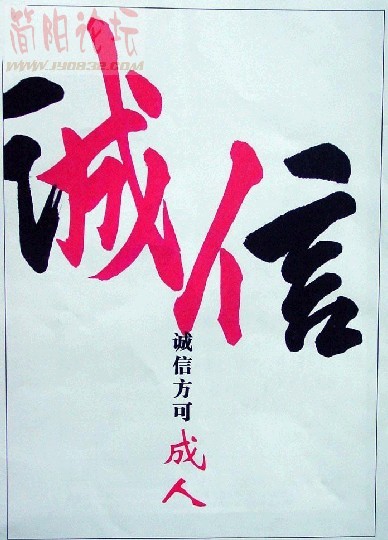 简阳论坛
www.jy0832.com
诚信
诚信方可成人